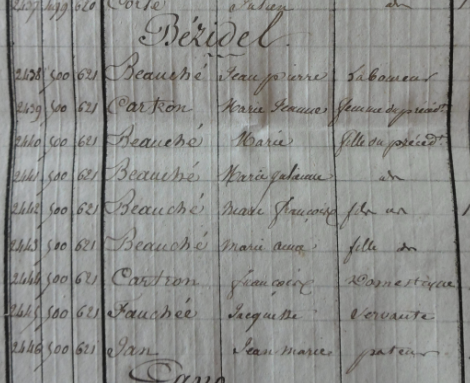 2437 499 620 Julien dn
Bézidel.
2438 500 621 Beauché Jean pierre Laboureur
2439 500 621 Cartron Marie Jeanne femme du précédt
2440 500 621 Beauché Marie fille du précédt
2441 500 621 Beauché Marie dn
2442 500 621 Beauché marie françoise dn
2443 500 621 Beauché marie anne fille dn
2444 500 621 Cartron françoise Domestique
2445 500 621 Fauchée Jacquette servante
2446 500 621 Jan Jean marie pateur